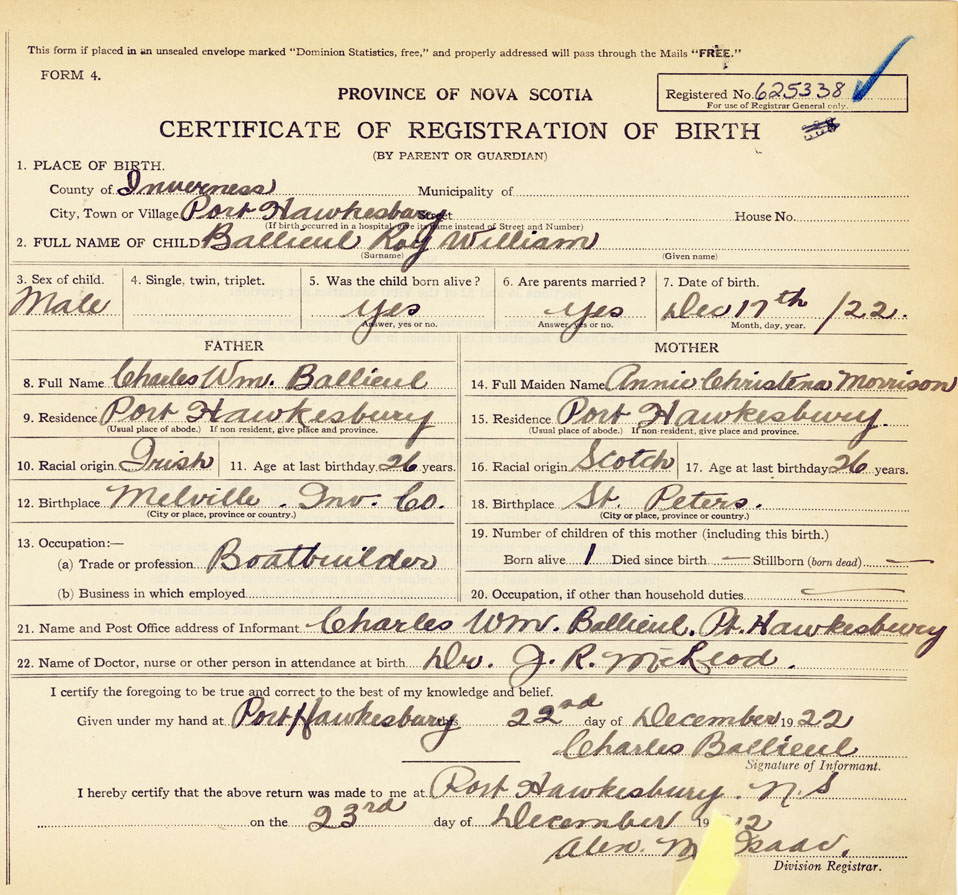 This form if placed in an unsealed envelope marked "Dominion Statistics, free," and properly addressed will pass through the Mails "FREE."
FORM 4.
Registered No. 625338
For use of Registrar General only.
PROVINCE OF NOVA SCOTIA
CERTIFICATE OF REGISTRATION OF BIRTH
(BY PARENT OR GUARDIAN)
1. PLACE OF BIRTH.
County of Inverness Municipality of
City, Town or Village Port Hawkesbury Street House No.
(If birth occurred in a hospital, give its name instead of Street and Number)
2. FULL NAME OF CHILD Ballieul Roy William
(Surname) (Given name)
3. Sex of child. 4. Single, twin, triplet. 5. Was the child born alive? 6. Are parents married? 7. Date of birth.
Male yes yes Dec 17th /22.
Answer, yes or no. Answer, yes or no. Month, day, year.
FATHER MOTHER
8. Full Name Charles Wm. Ballieul 14. Full Maiden Name Annie Christena Morrison
9. Residence Port Hawkesbury 15. Residence Port Hawkesbury.
(Usual place of abode.) If non resident, give place and province. (Usual place of abode.) If non-resident, give place and province.
10. Racial origin Irish 11. Age at last birthday 26 years. 16. Racial origin Scotch 17. Age at last birthday 26 years.
12. Birthplace Melville. Inv. Co. 18. Birthplace St. Peters.
(City or place, province or country.) (City or place, province or country.)
13. Occupation:— 19. Number of children of this mother (including this birth.)
(a) Trade or profession Boatbuilder Born alive 1 Died since birth — Stillborn (born dead) —
(b) Business in which employed 20. Occupation, if other than household duties —
21. Name and Post Office address of Informant Charles Wm. Ballieul. Pt. Hawkesbury
22. Name of Doctor, nurse or other person in attendance at birth Dr. J. R. McLeod.
I certify the foregoing to be true and correct to the best of my knowledge and belief.
Given under my hand at Port Hawkesbury this 22nd day of December 1922
Charles Ballieul
Signature of Informant.
I hereby certify that the above return was made to me at Port Hawkesbury. N.S
on the 23rd day of December 19 2
Alex. M Isaac.
Division Registrar.